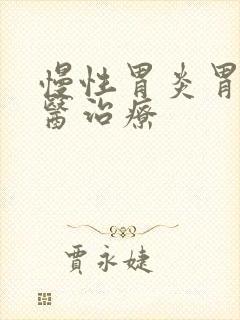 慢性胃炎胃
醫治療
賈永婕